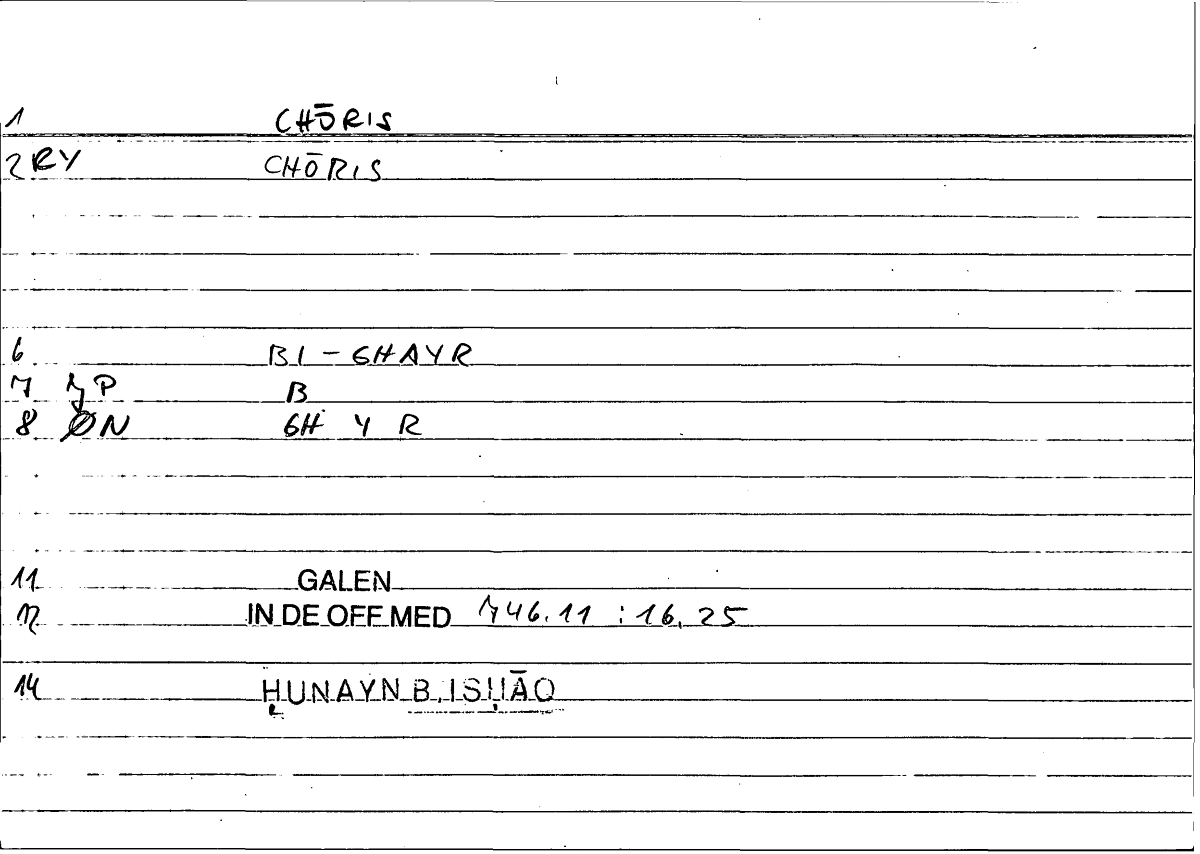 1 CHŌRIS
2 RY CHŌRIS
6 BI-GHAYR
7 P B
8 ØN GH Y R
11 GALEN
12 IN DE OFF MED 746.11 : 16,25
14 ḤUNAYN B. ISḤĀQ